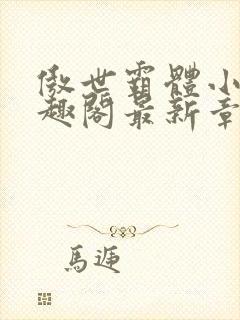 傲世霸體小
趣閣最新章
馬遊